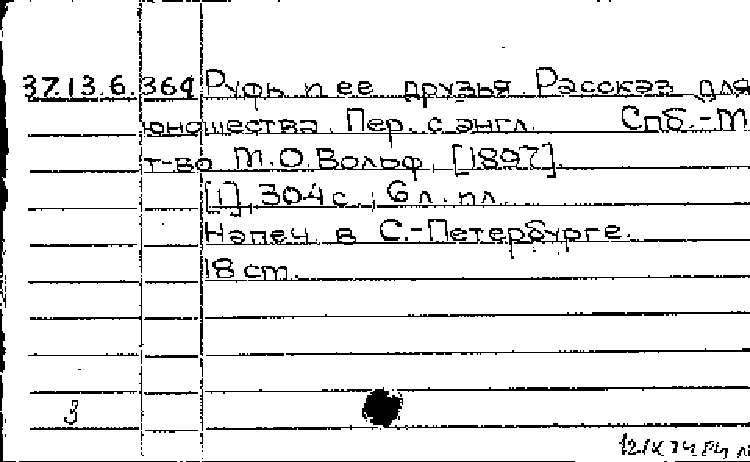 37.13.6.364 Руфь и ее друзья. Рассказ для
юношества. Пер. с англ. Спб.-М.
т-во М.О.Вольф, [1897].
[1], 304 с., 6 л. ил.
Напеч. в С.-Петербурге.
18 cm.
3